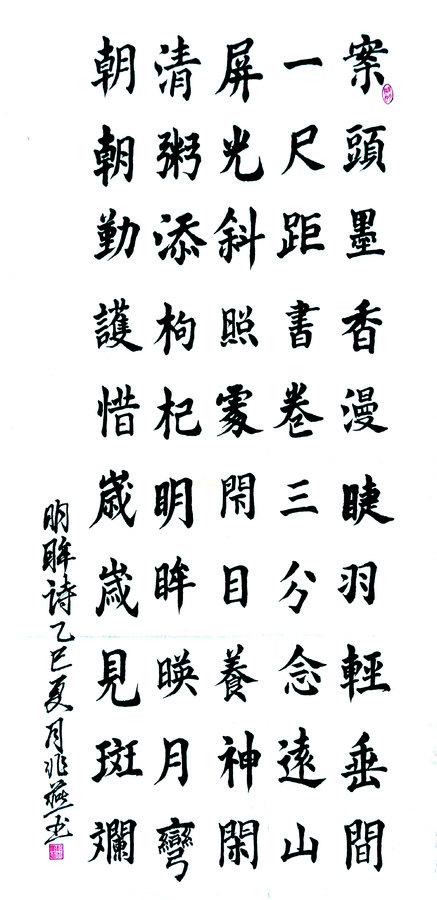 案頭墨香漫睫羽輕垂間
一尺距書卷三分念遠山
屏光斜照處閑目養神閑
清粥添枸杞明眸暎月彎
朝朝勤護惜歲歲見斑斕
明眸詩乙巳夏月兆燕书